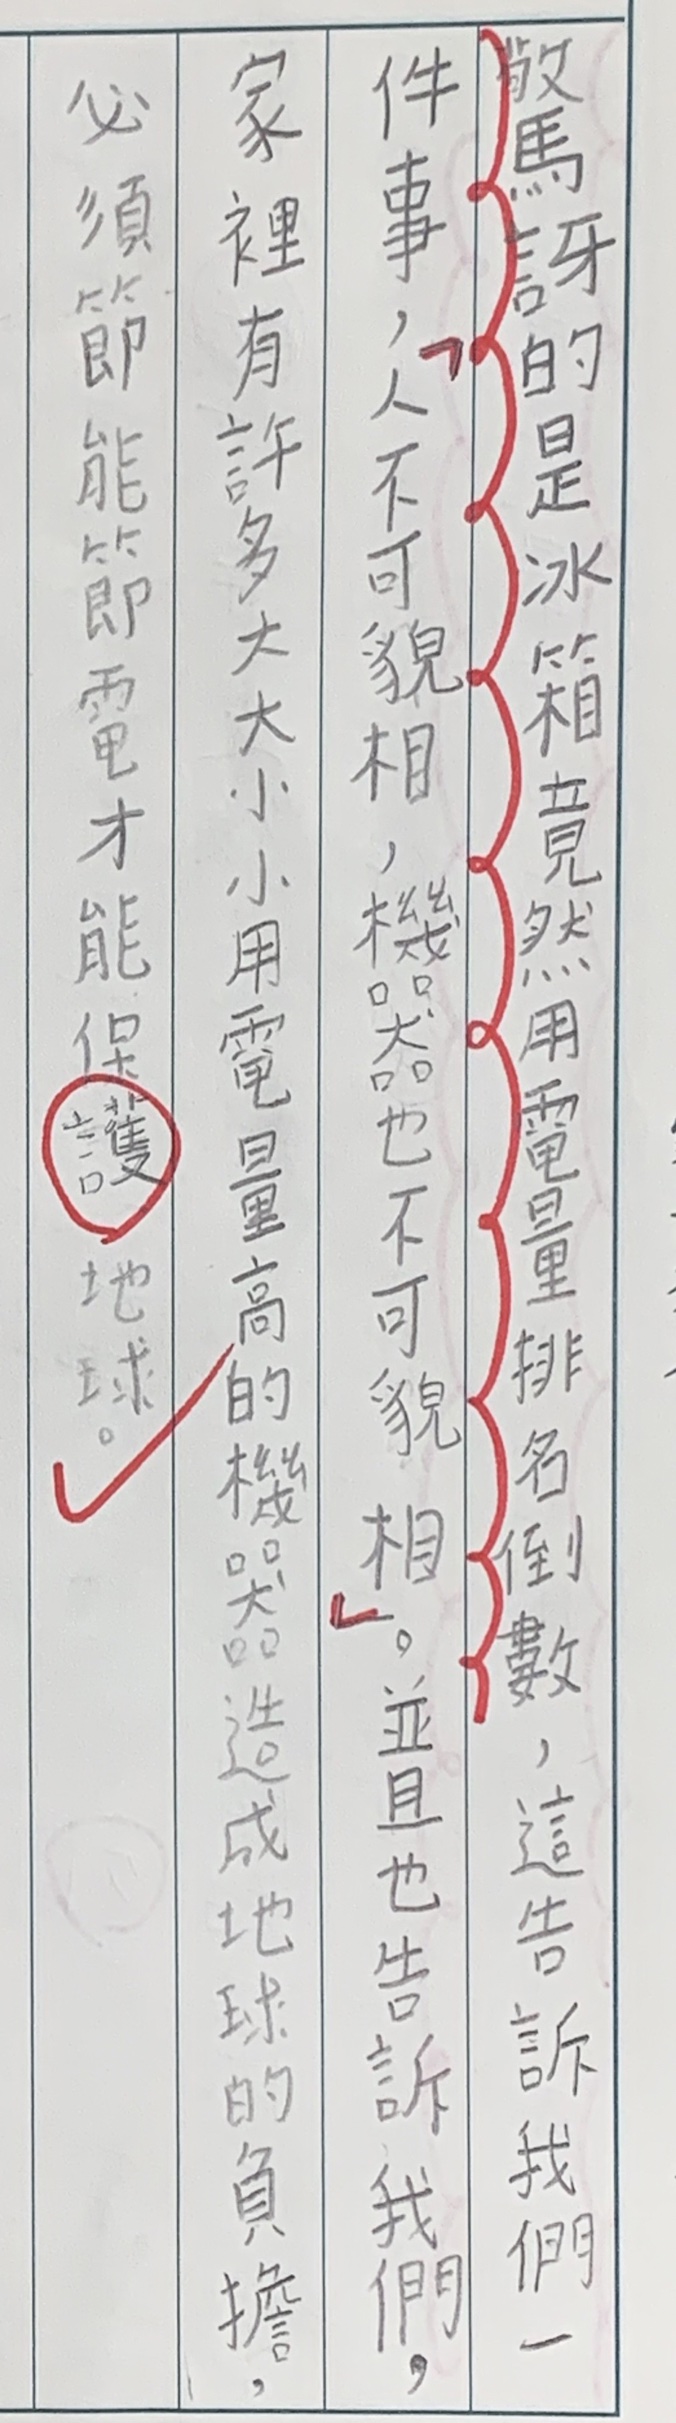 驚訝的是冰箱竟然用電量排名倒數，這告訴我們一
件事，「人不可貌相，機器也不可貌相」。並且也告訴我們，
家裡有許多大大小小用電量高的機器造成地球的負擔，
必須節能節電才能保護地球。